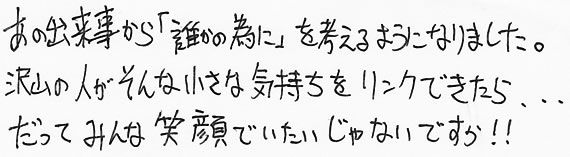 あの出来事から「誰かの為に」を考えるようになりました。
沢山の人がそんな小さな気持ちをリンクできたら...
だってみんな笑顔でいたいじゃないですか!!